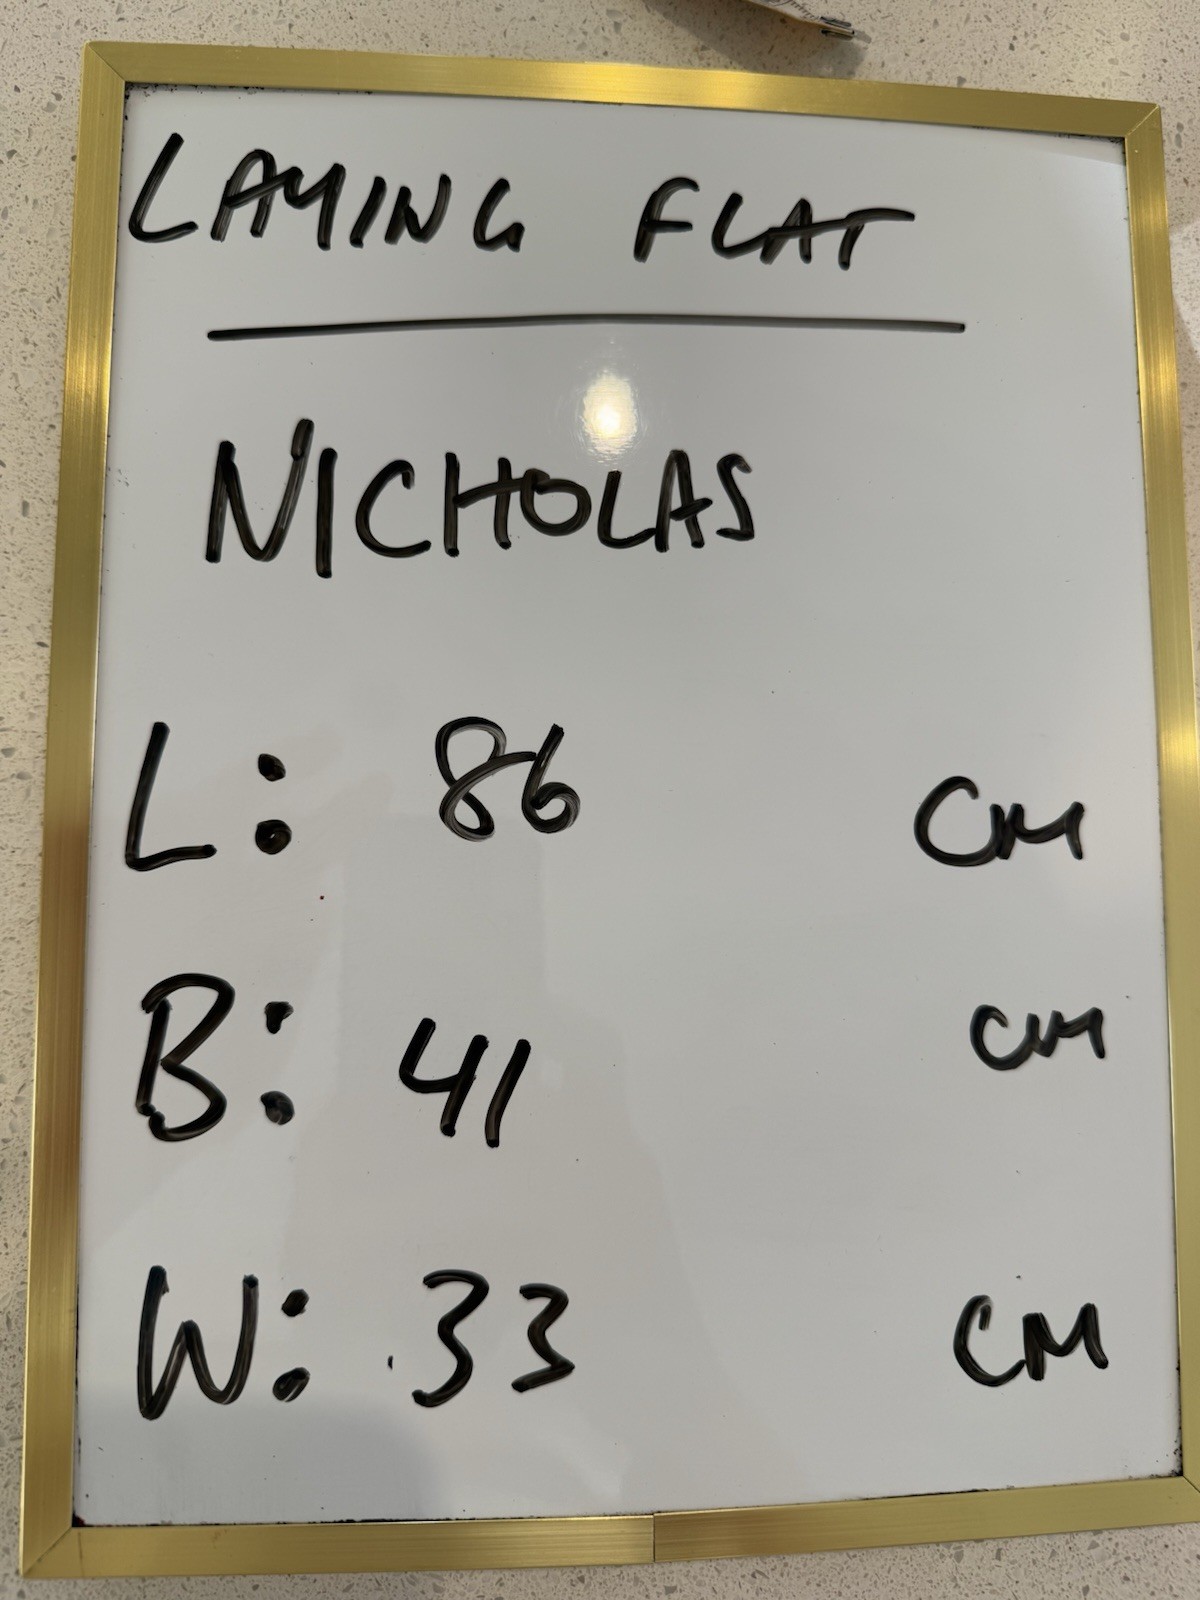 LAYING FLAT
NICHOLAS
L: 86 CM
B: 41 CM
W: 33 CM